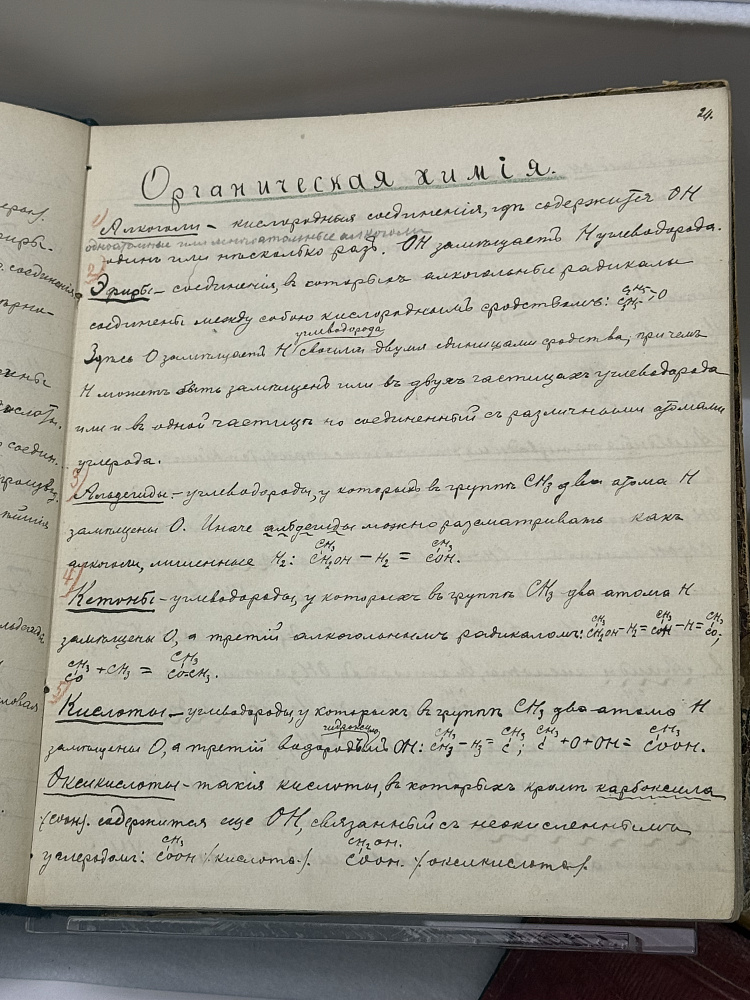 24.
Органическая химія.
1) Алкоголи – кислородныя соединенія, гдѣ содержится OH
одноатомные или многоатомные алкоголи
одинъ или нѣсколько разъ. OH замѣщаетъ H углеводорода.
2) Эфиры – соединенія, въ которыхъ алкогольные радикалы
соединены между собою кислороднымъ сродствомъ: CH3 CH3 >O
углеводорода
Здѣсь O замѣщаетъ H своими двумя единицами сродства, причемъ
H можетъ быть замѣщенъ или въ двухъ частицахъ углеводорода
или и въ одной частицѣ но соединенный съ различными атомами
углерода.
3) Альдегиды – углеводороды, у которыхъ въ группѣ CH3 два атома H
замѣщены O. Иначе альдегиды можно разсматривать какъ
алкоголи, лишенные H2: CH3 CH2OH – H2 = CH3 COH.
4) Кетоны – углеводороды, у которыхъ въ группѣ CH3 два атома H
замѣщены O, а третій алкогольнымъ радикаломъ: CH3 CH2OH – H2 = CH3 COH – H = CH3 CO;
CH3 CO + CH3 = CH3 CO-CH3.
5) Кислоты – углеводороды, у которыхъ въ группѣ CH3 два атома H
гидроксил
замѣщены O, а третій OH: CH3 CH3 – H3 = CH3 C; CH3 C + O + OH = CH3 COOH.
Оксикислоты – такія кислоты, въ которыхъ кромѣ карбоксила
(COOH). содержится еще OH, связанный съ неокисленнымъ
углеродомъ: CH3 COOH (кислота). CH2OH. COOH. (оксикислота).